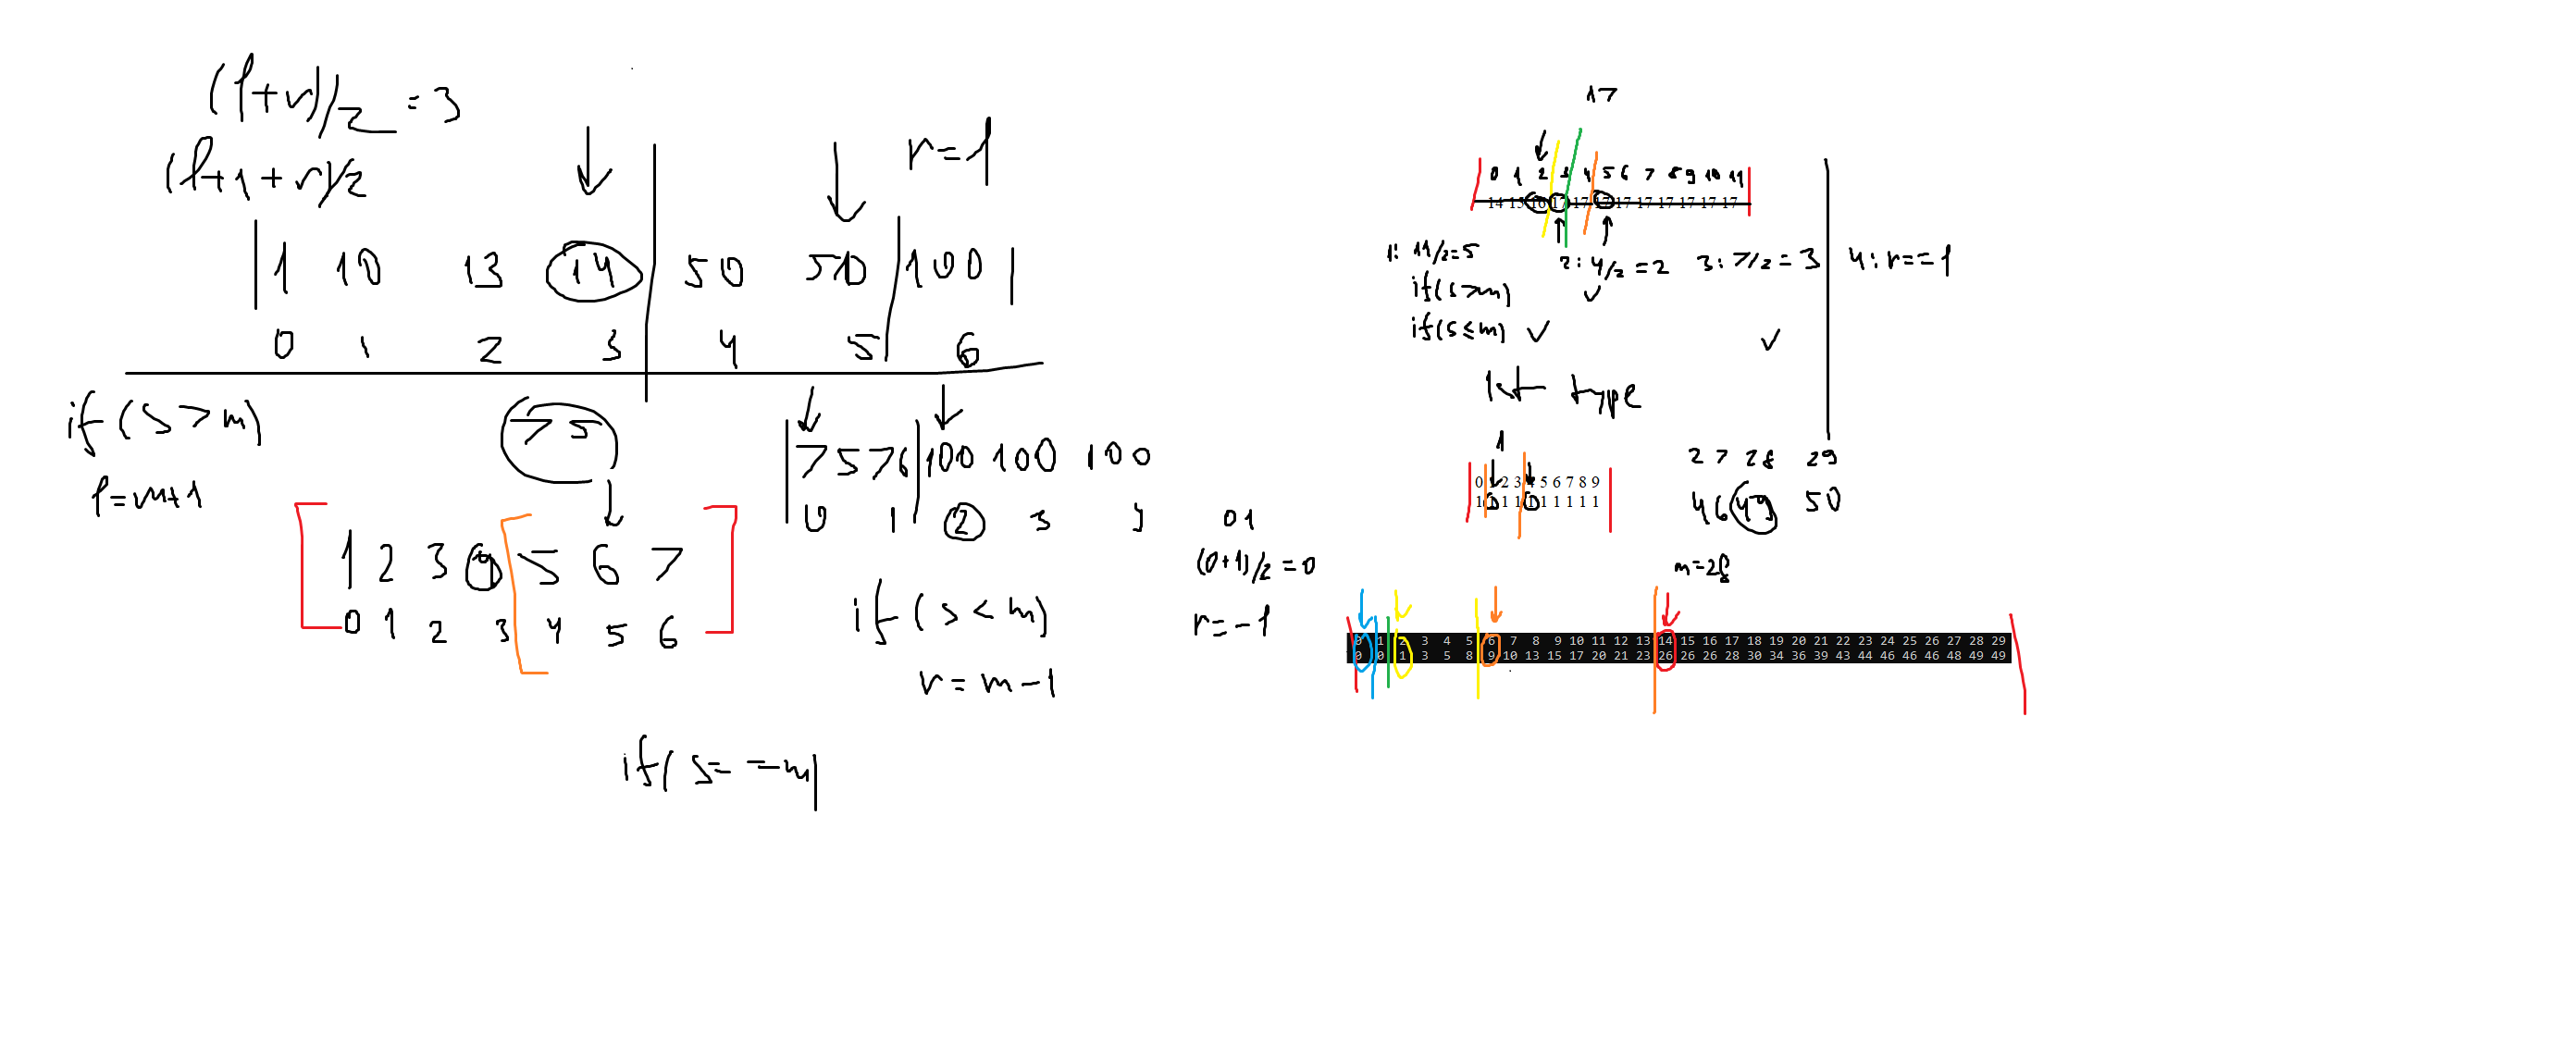 (l+r)/2 = 3
(l+1+r)/2
r=l
1 10 13 14 50 510 100
0 1 2 3 4 5 6
if (s > m)
l = m+1
75
1 2 3 4 5 6 7
0 1 2 3 4 5 6
7 5 76 100 100 100
0 1 2 3
if (s < m)
r = m - 1
if (s = = m)
0 1
(0+1)/2 = 0
r = -1
17
0 1 2 3 4 5 6 7 8 9 10 11
14 15 16 17 17 17 17 17 17 17 17 17
1: 11/2=5
if(s>m)
if(s≤m) ✓
2: 4/2 = 2
✓
3: 7/2 = 3
✓
4: r==l
1st type
1
0 1 2 3 4 5 6 7 8 9
1 1 1 1 1 1 1 1 1 1
27 28 29
46 49 50
m=28
0 1 2 3 4 5 6 7 8 9 10 11 12 13 14 15 16 17 18 19 20 21 22 23 24 25 26 27 28 29
0 0 1 3 5 8 9 10 13 15 17 20 21 23 26 26 26 28 30 34 36 39 43 44 46 46 46 48 49 49